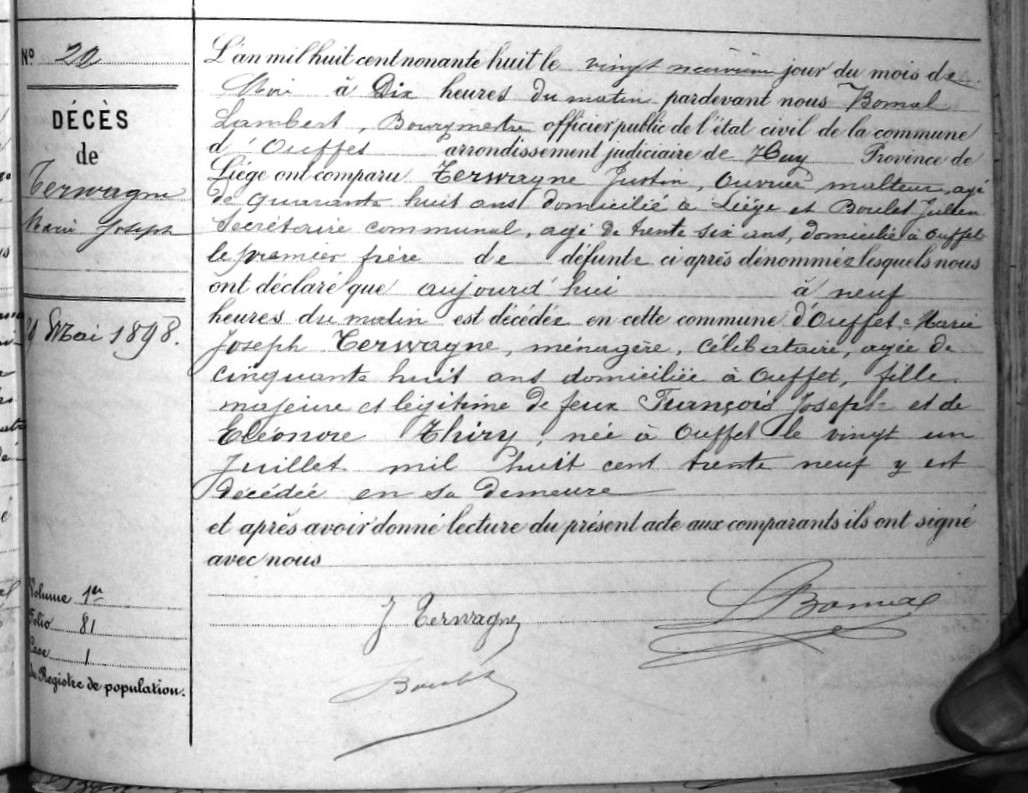 N° 20
DÉCÈS
de
Terwagne
Marie Joseph
29 Mai 1898.
Volume 1er
Folio 81
Case 1
du Registre de population.
L'an mil huit cent nonante huit le vingt neuvième jour du mois de
Mai à Dix heures du matin pardevant nous Bomal
Lambert, Bourgmestre officier public de l'état civil de la commune
d'Ouffet arrondissement judiciaire de Huy Province de
Liège ont comparu Terwagne Justin, Ouvrier malteur, agé
de quarante huit ans domicilié à Liège et Boulet Julien
Secrétaire communal, agé de trente six ans, domicilié à Ouffet
le premier frère de défunte ci après dénommée lesquels nous
ont déclaré que aujourd'hui à neuf
heures du matin est décédée en cette commune d'Ouffet Marie
Joseph Terwagne, ménagère, célibataire, agée de
cinquante huit ans domiciliée à Ouffet, fille
majeure et légitime de feux François Joseph et de
Eléonore Thiry, née à Ouffet le vingt un
Juillet mil huit cent trente neuf y est
décédée en sa demeure
et après avoir donné lecture du présent acte aux comparants ils ont signé
avec nous
J Terwagne
LBomal
Boulet